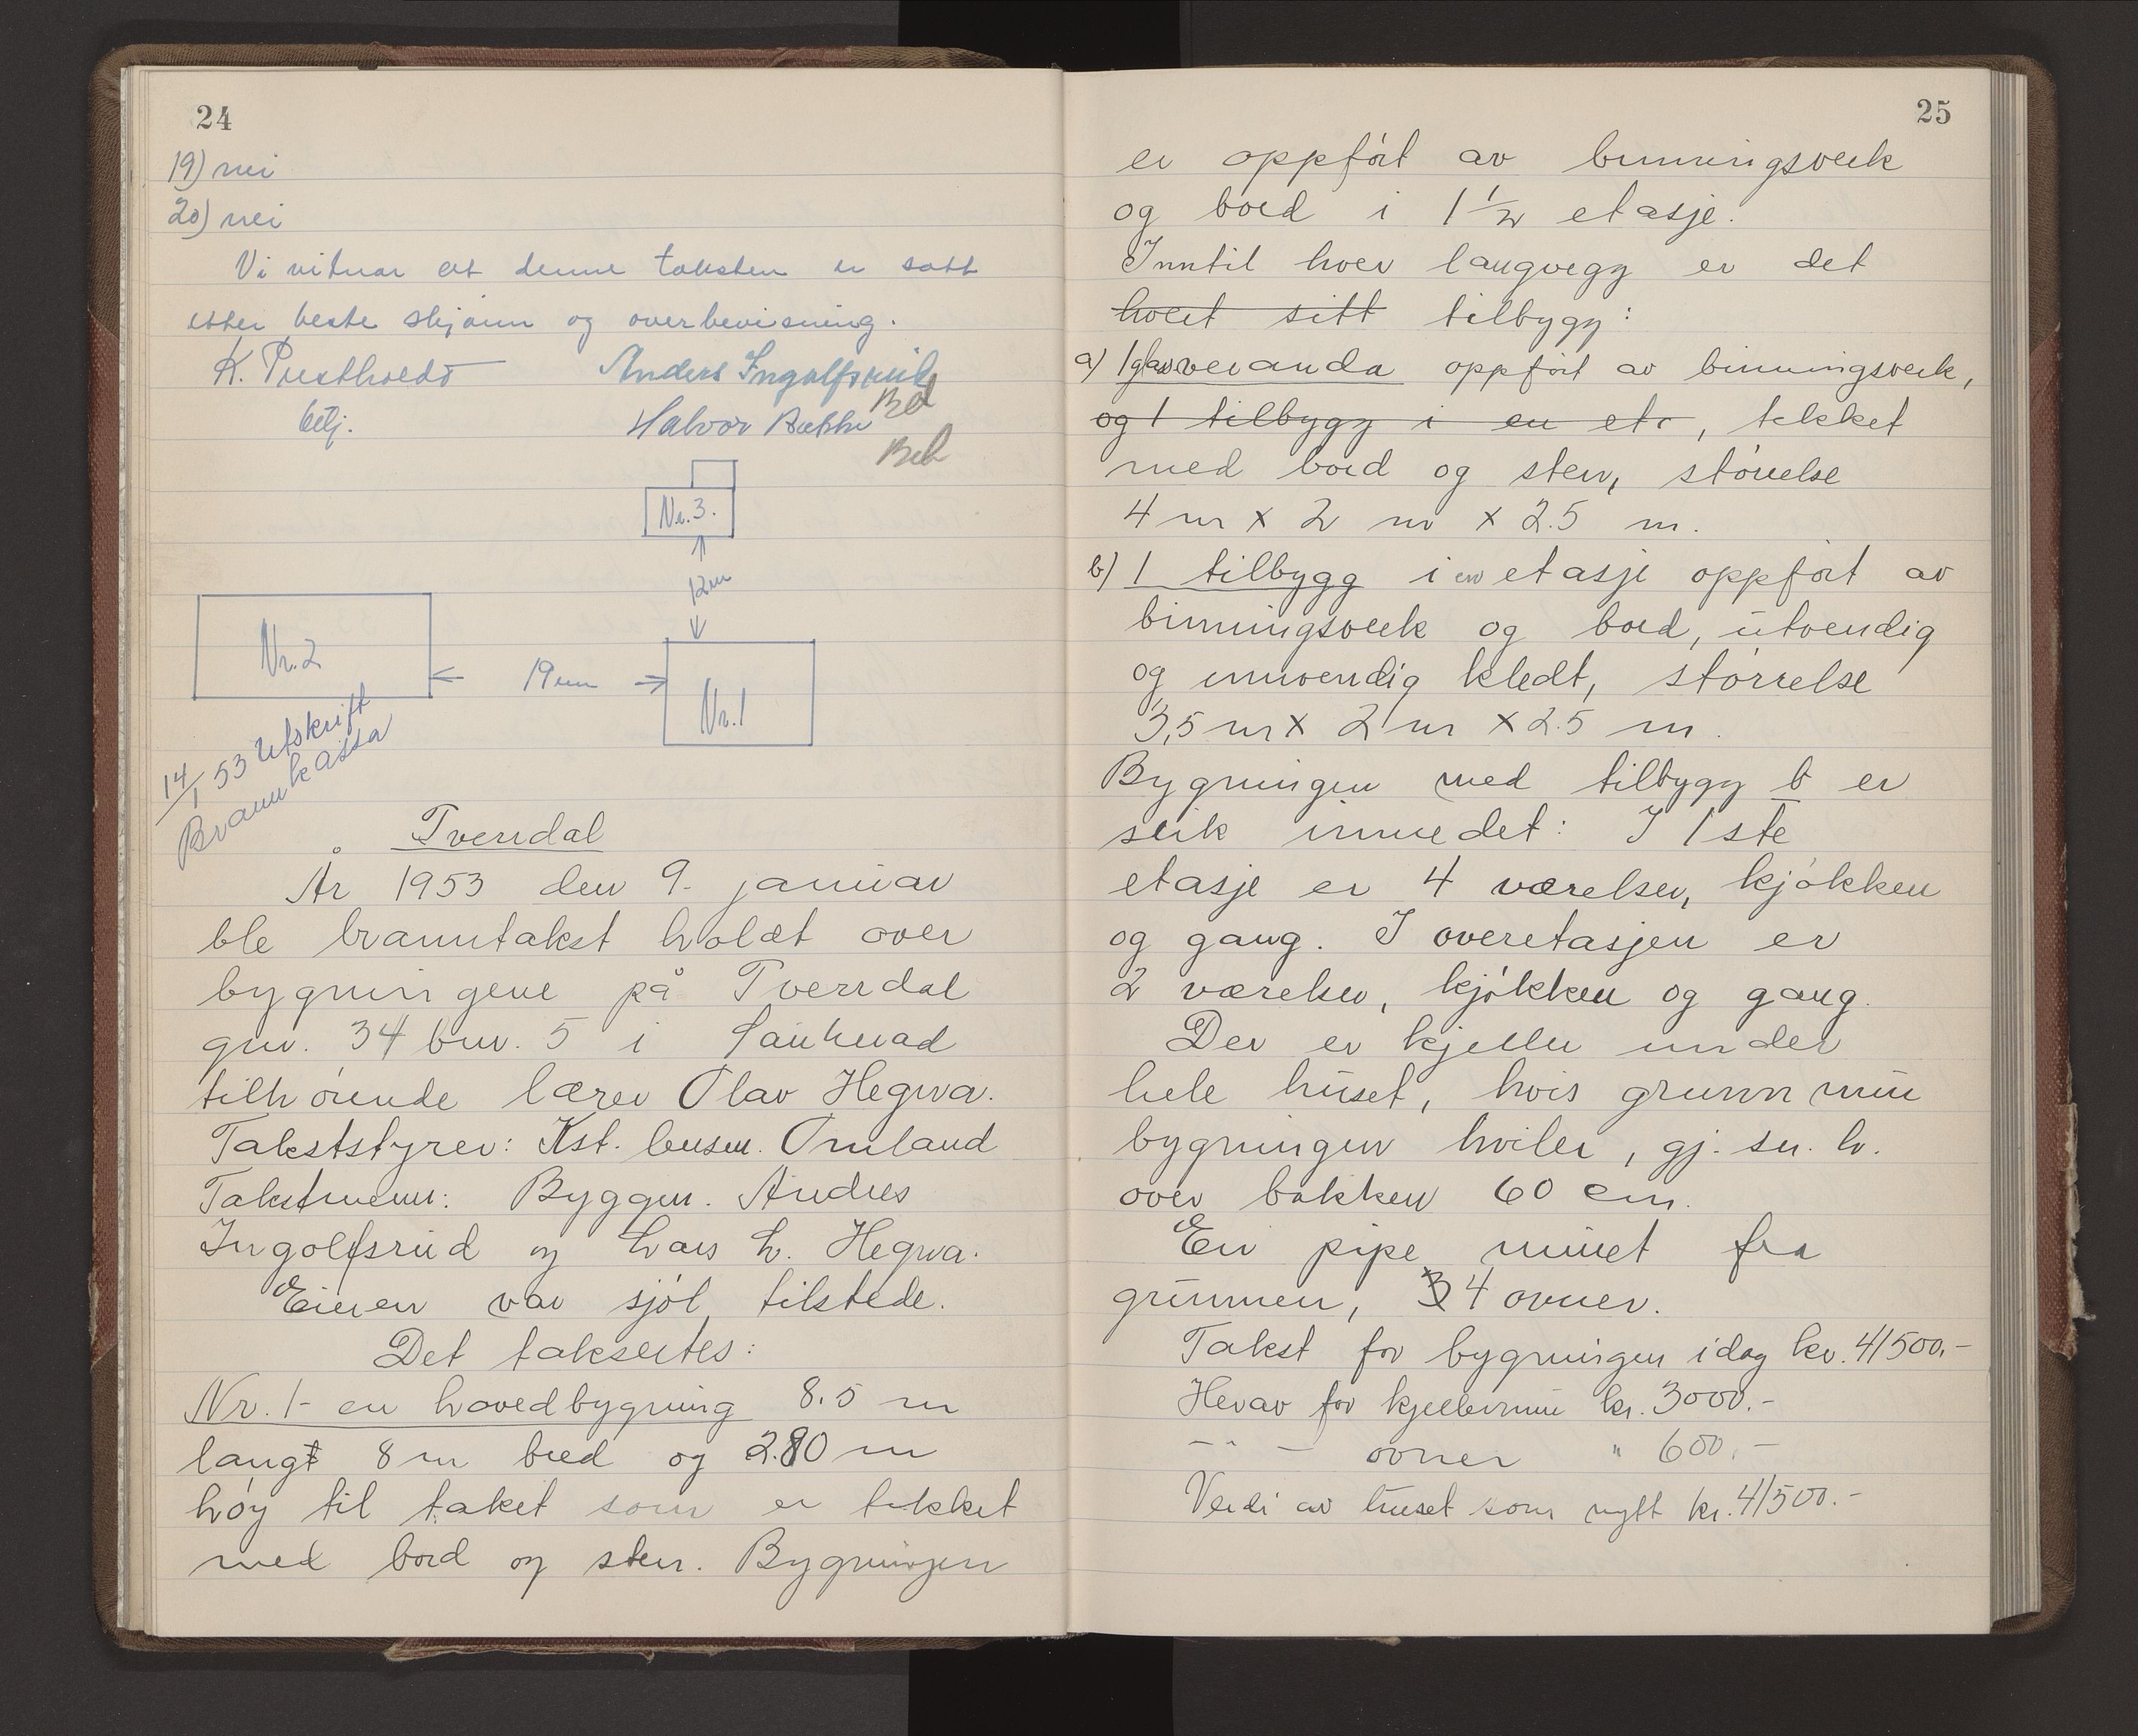 24
19) nei
20) nei
Vi vitnar at denne taksten er satt
etter beste skjønn og overbevisning.
K. Prestholdt Anders Ingolfsrud
betj. Halvor Bakke
Nr. 3.
12m
Nr. 2
19m
Nr. 1
14/1 53 Utskrift
Brannkassa
Tverrdal
År 1953 den 9. januar
ble branntakst holdt over
bygningene på Tverrdal
gnr. 34 bnr. 5 i Sauherad
tilhørende lærer Olav Hegna.
Takststyrer: Kst. lensm. Omland
Takstmenn: Byggm. Andres
Ingolfsrud og Lars L. Hegna.
Eieren var sjøl tilstede.
Det takseertes:
Nr. 1 - en hovedbygning 8.5 m
langt 8 m bred og 2.80 m
høy til taket som er tekket
med bord og sten. Bygningen
25
er oppført av binningsverk
og bord i 1 1/2 etasje.
Inntil hver langvegg er det
hvert sitt tilbygg:
a) 1 glassveranda oppført av binningsverk,
og 1 tilbygg i en et., tekket
med bord og sten, størrelse
4 m x 2 m x 2.5 m.
b) 1 tilbygg i en etasje oppført av
binningsverk og bord, utvendig
og innvendig kledt, størrelse
3,5 m x 2 m x 2.5 m.
Bygningen med tilbygg b er
slik innredet: I 1ste
etasje er 4 værelser, kjøkken
og gang. I overetasjen er
2 værelser, kjøkken og gang.
Der er kjeller under
hele huset, hvis grunnmur
bygningen hviler, gj. sn. h.
over bakken 60 cm.
En pipe muret fra
grunnen, 3 4 ovner.
Takst for bygningen idag kr. 41500.-
Herav for kjellermur kr. 3000.-
-"- ovner " 600.-
Verdi av huset som nytt kr. 41500.-